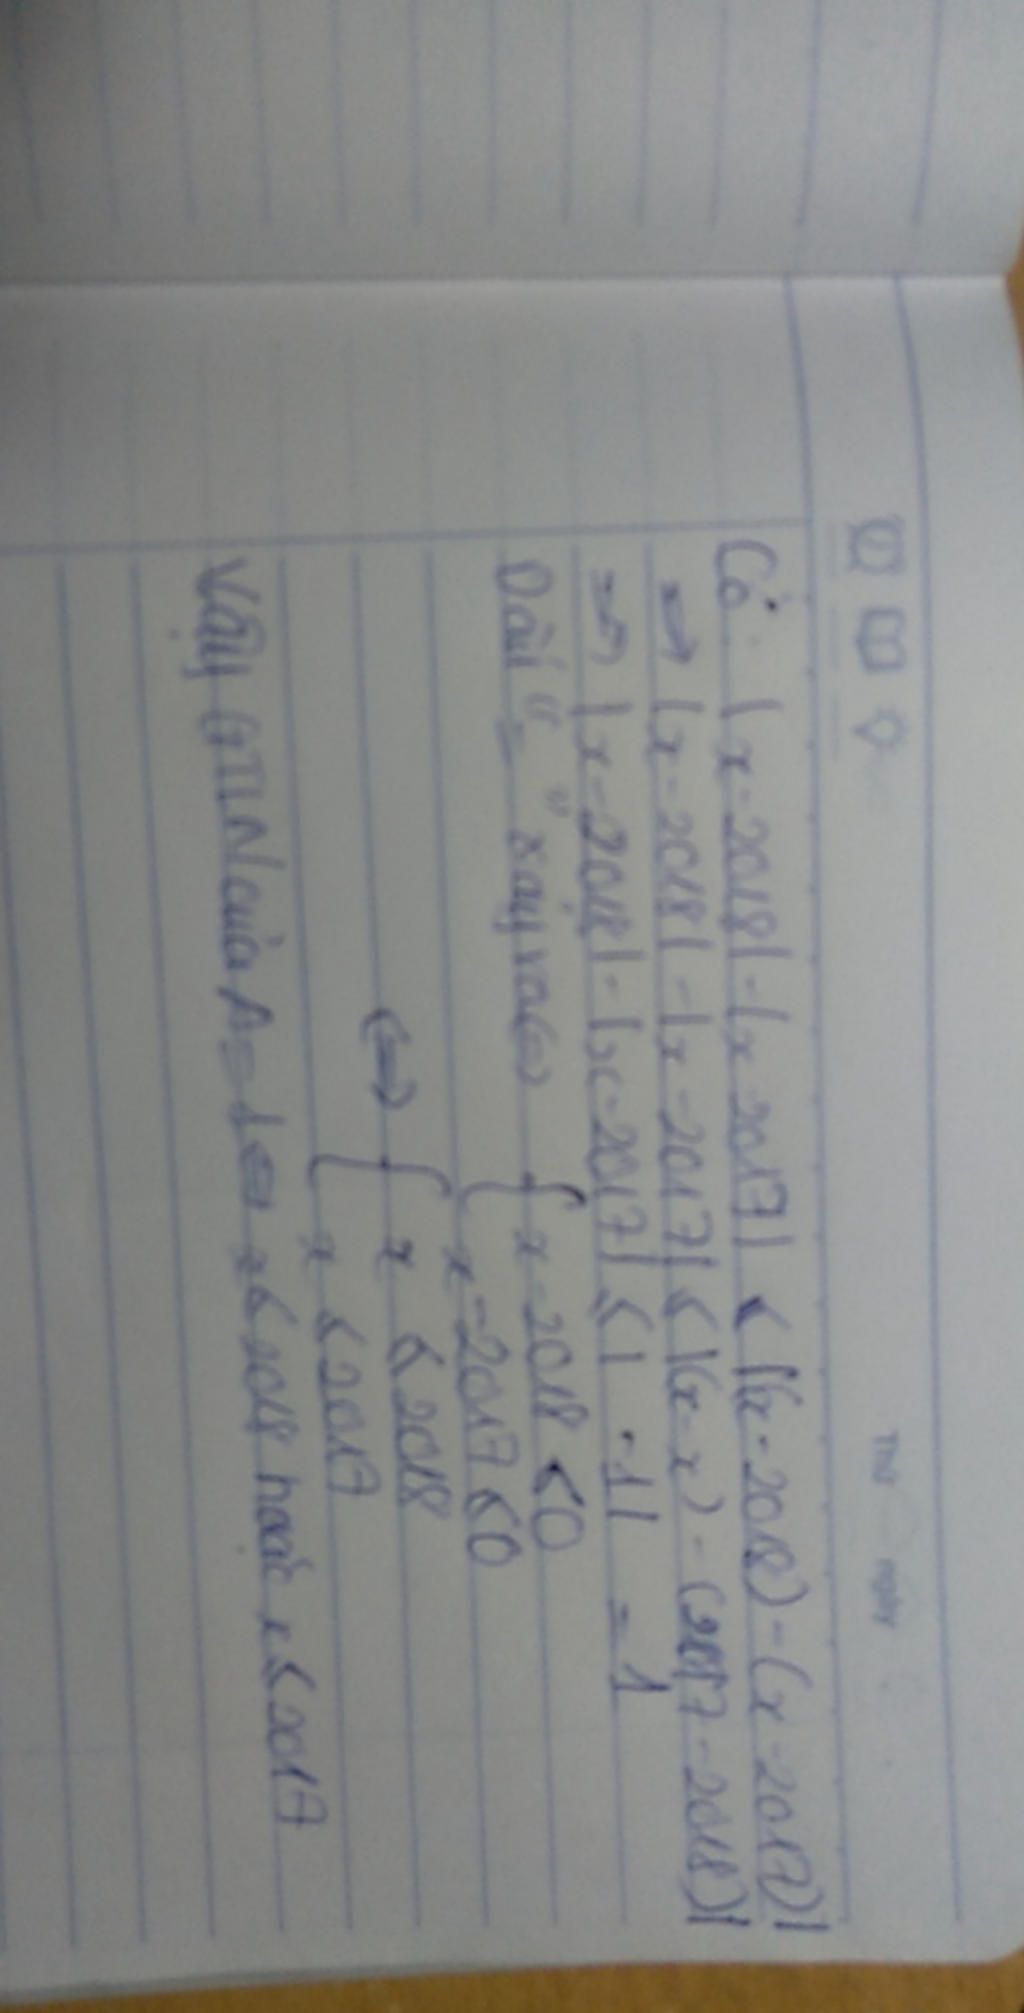 Thứ ngày
Có: |x-2018| - |x-2017| ≤ |(x-2018) - (x-2017)|
→ |x-2018| - |x-2017| ≤ |(x-x) - (2017-2018)|
=> |x-2018| - |x-2017| ≤ | -1| = 1
Dấu "=" xảy ra <=> { x-2018 ≤ 0
x-2017 ≤ 0
<=> { x ≤ 2018
x ≤ 2017
Vậy GTLN của A = 1 <=> x ≤ 2018 hoặc x ≤ 2017